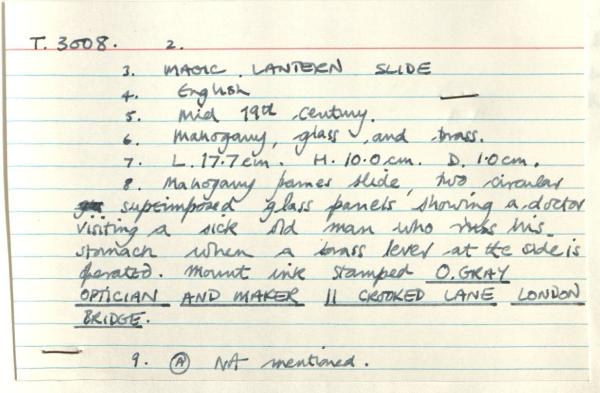 T. 3008. 2.
3. MAGIC LANTERN SLIDE
4. English
5. Mid 19th century.
6. Mahogany, glass and brass.
7. L. 17.7cm. H. 10.0cm. D. 1.0cm.
8. Mahogany frames slide, two circular
superimposed glass panels showing a doctor
visiting a sick old man who his
stomach when a brass lever at the side is
operated. Mount ink stamped O. GRAY
OPTICIAN AND MAKER 11 CROOKED LANE LONDON
BRIDGE.
9. A NA mentioned.